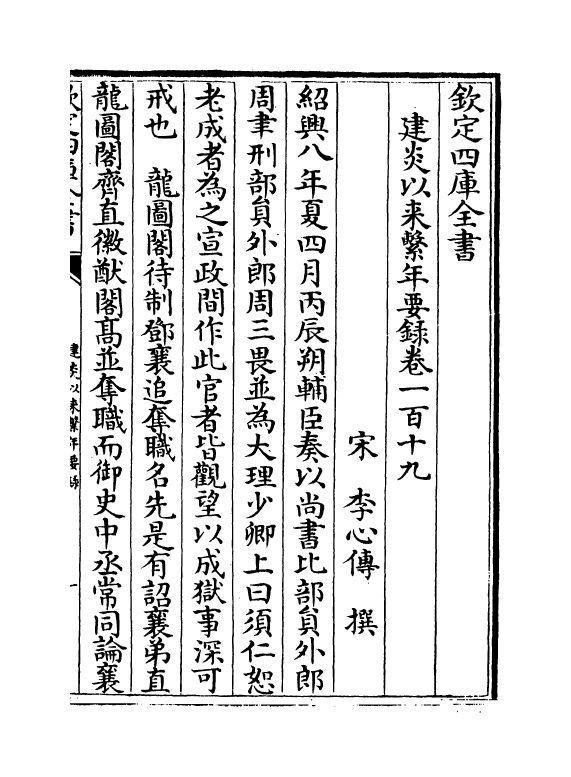 欽定四庫全書
建炎以来繫年要録卷一百十九
宋 李心傳 撰
紹興八年夏四月丙辰朔輔臣奏以尚書比部員外郎
周聿刑部員外郎周三畏並為大理少卿上曰須仁恕
老成者為之宣政間作此官者皆觀望以成獄事深可
戒也 龍圖閣待制鄧襄追奪職名先是有詔襄弟直
龍圖閣齊直徽猷閣髙並奪職而御史中丞常同論襄
欽定四庫全書
建炎以来繫年要録
一